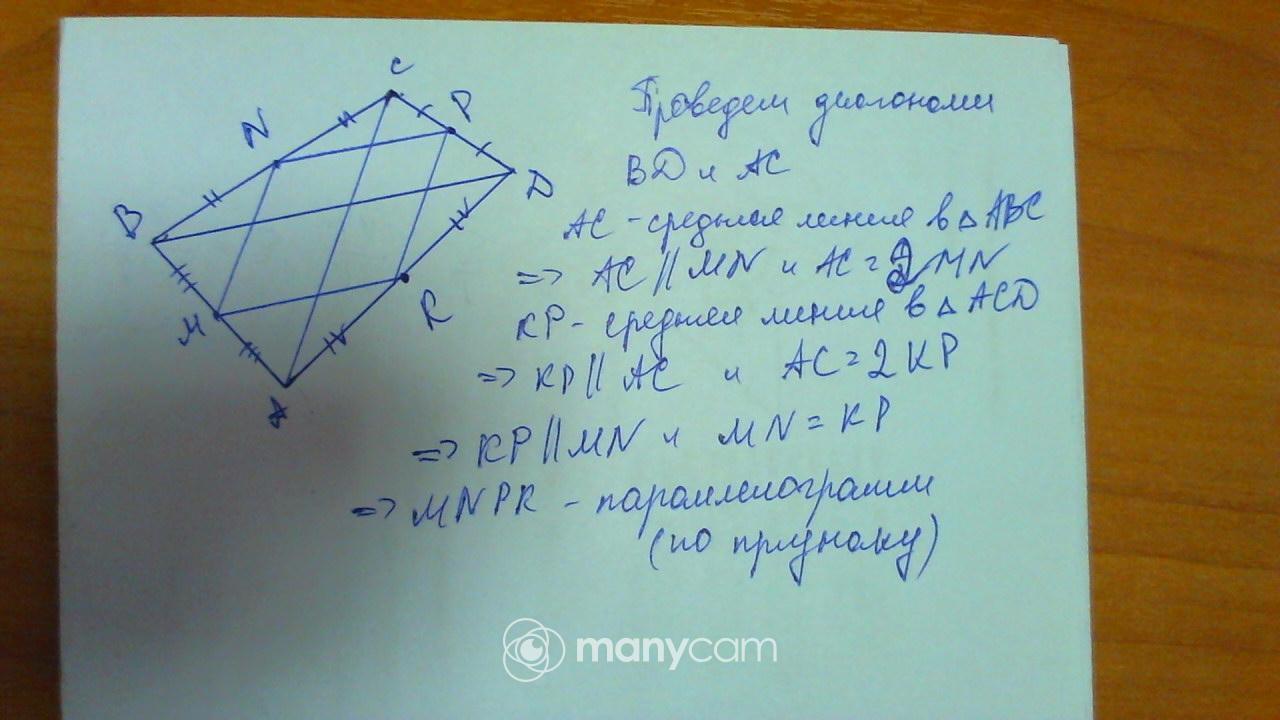 C
P
N
D
B
M
K
A
Проведем диагонали
BD и AC
AC - средняя линия в △ ABC
=> AC || MN и AC = 2 MN
KP - средняя линия в △ ACD
=> KP || AC и AC = 2 KP
=> KP || MN и MN = KP
=> MNPK - параллелограмм
(по признаку)
manycam